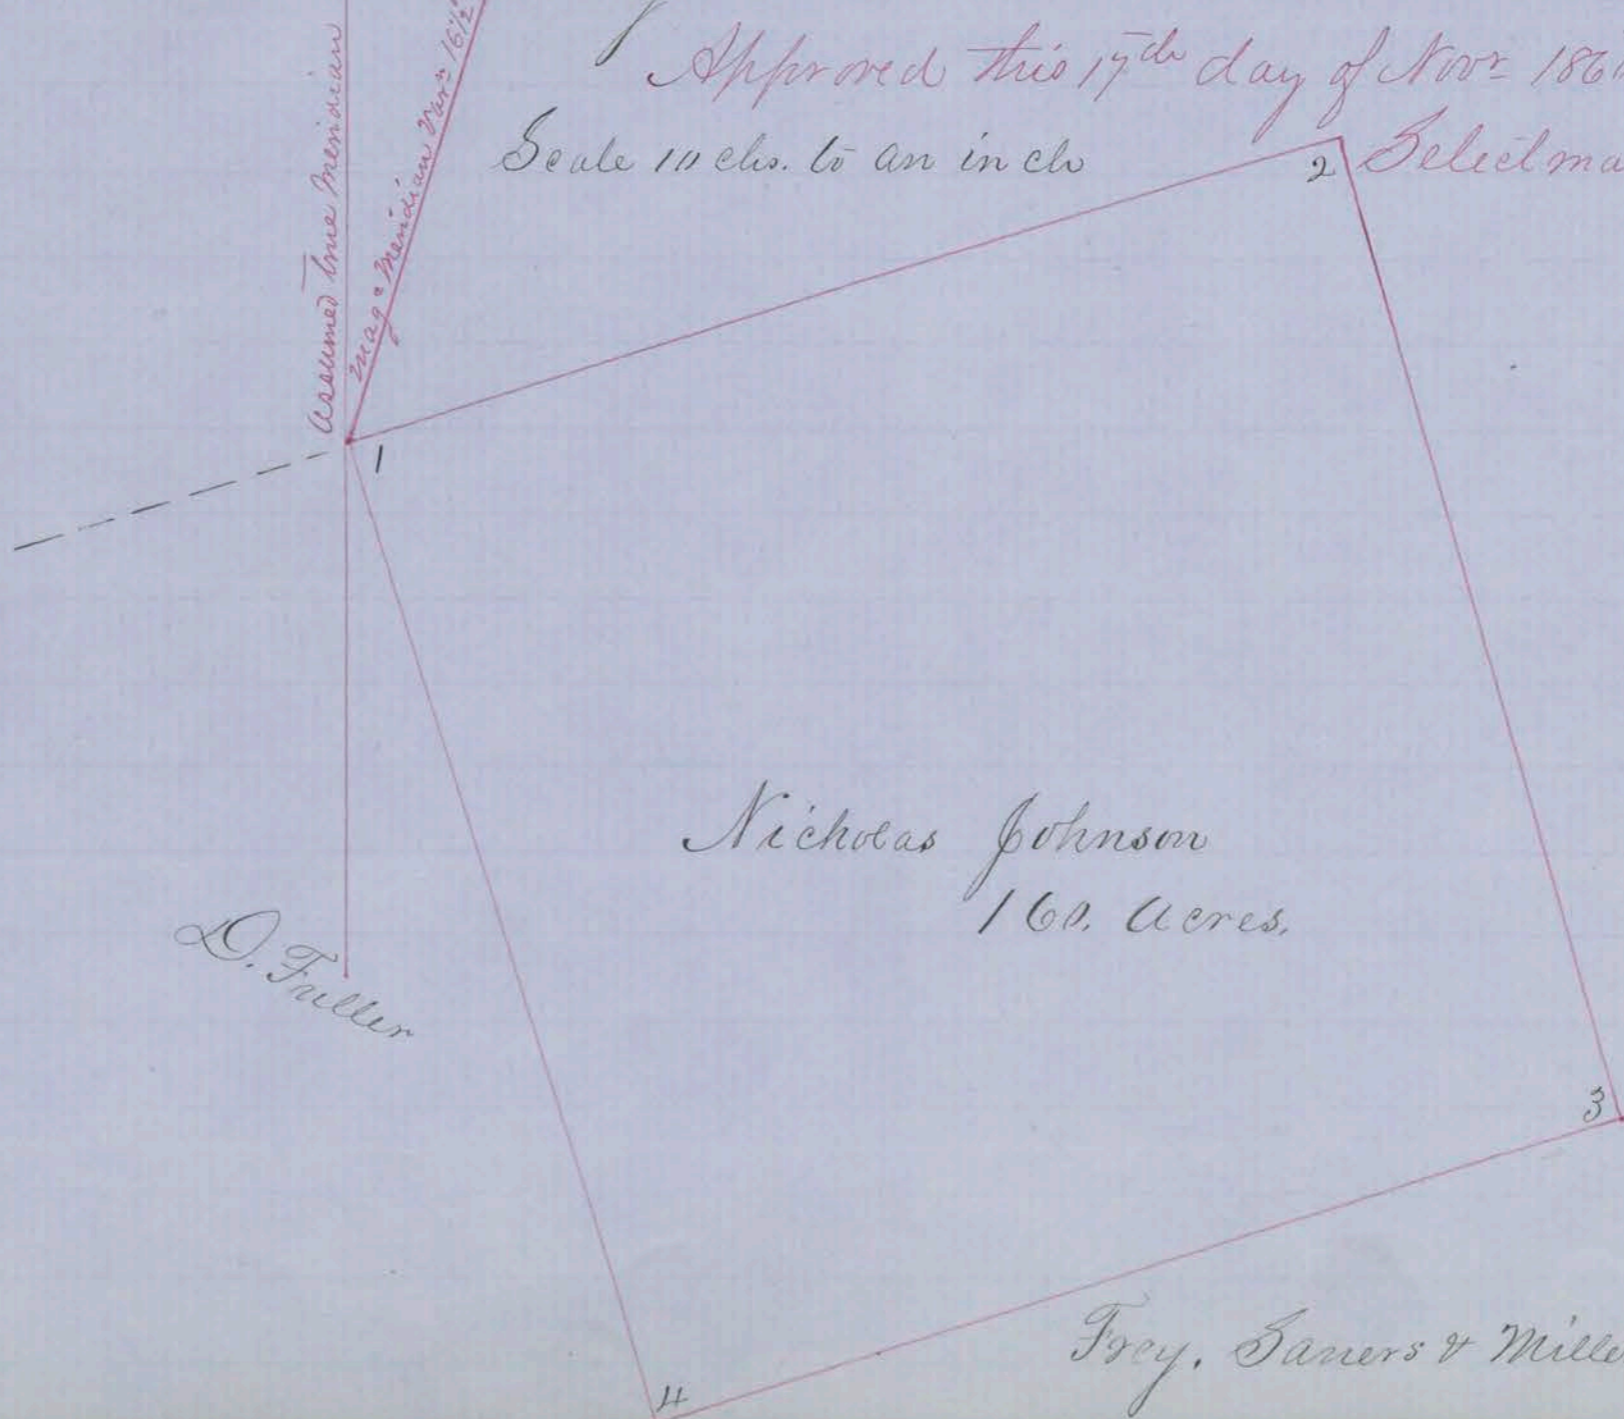 Approved this 17th day of Novr 186
Scale 10 chs. to an inch
2
Selectma
Assumed True Meridian
Mag c Meridian Varn 16½
1
Nicholas Johnson
160. Acres.
D. Fuller
3
Frey. Saners & Mille
4